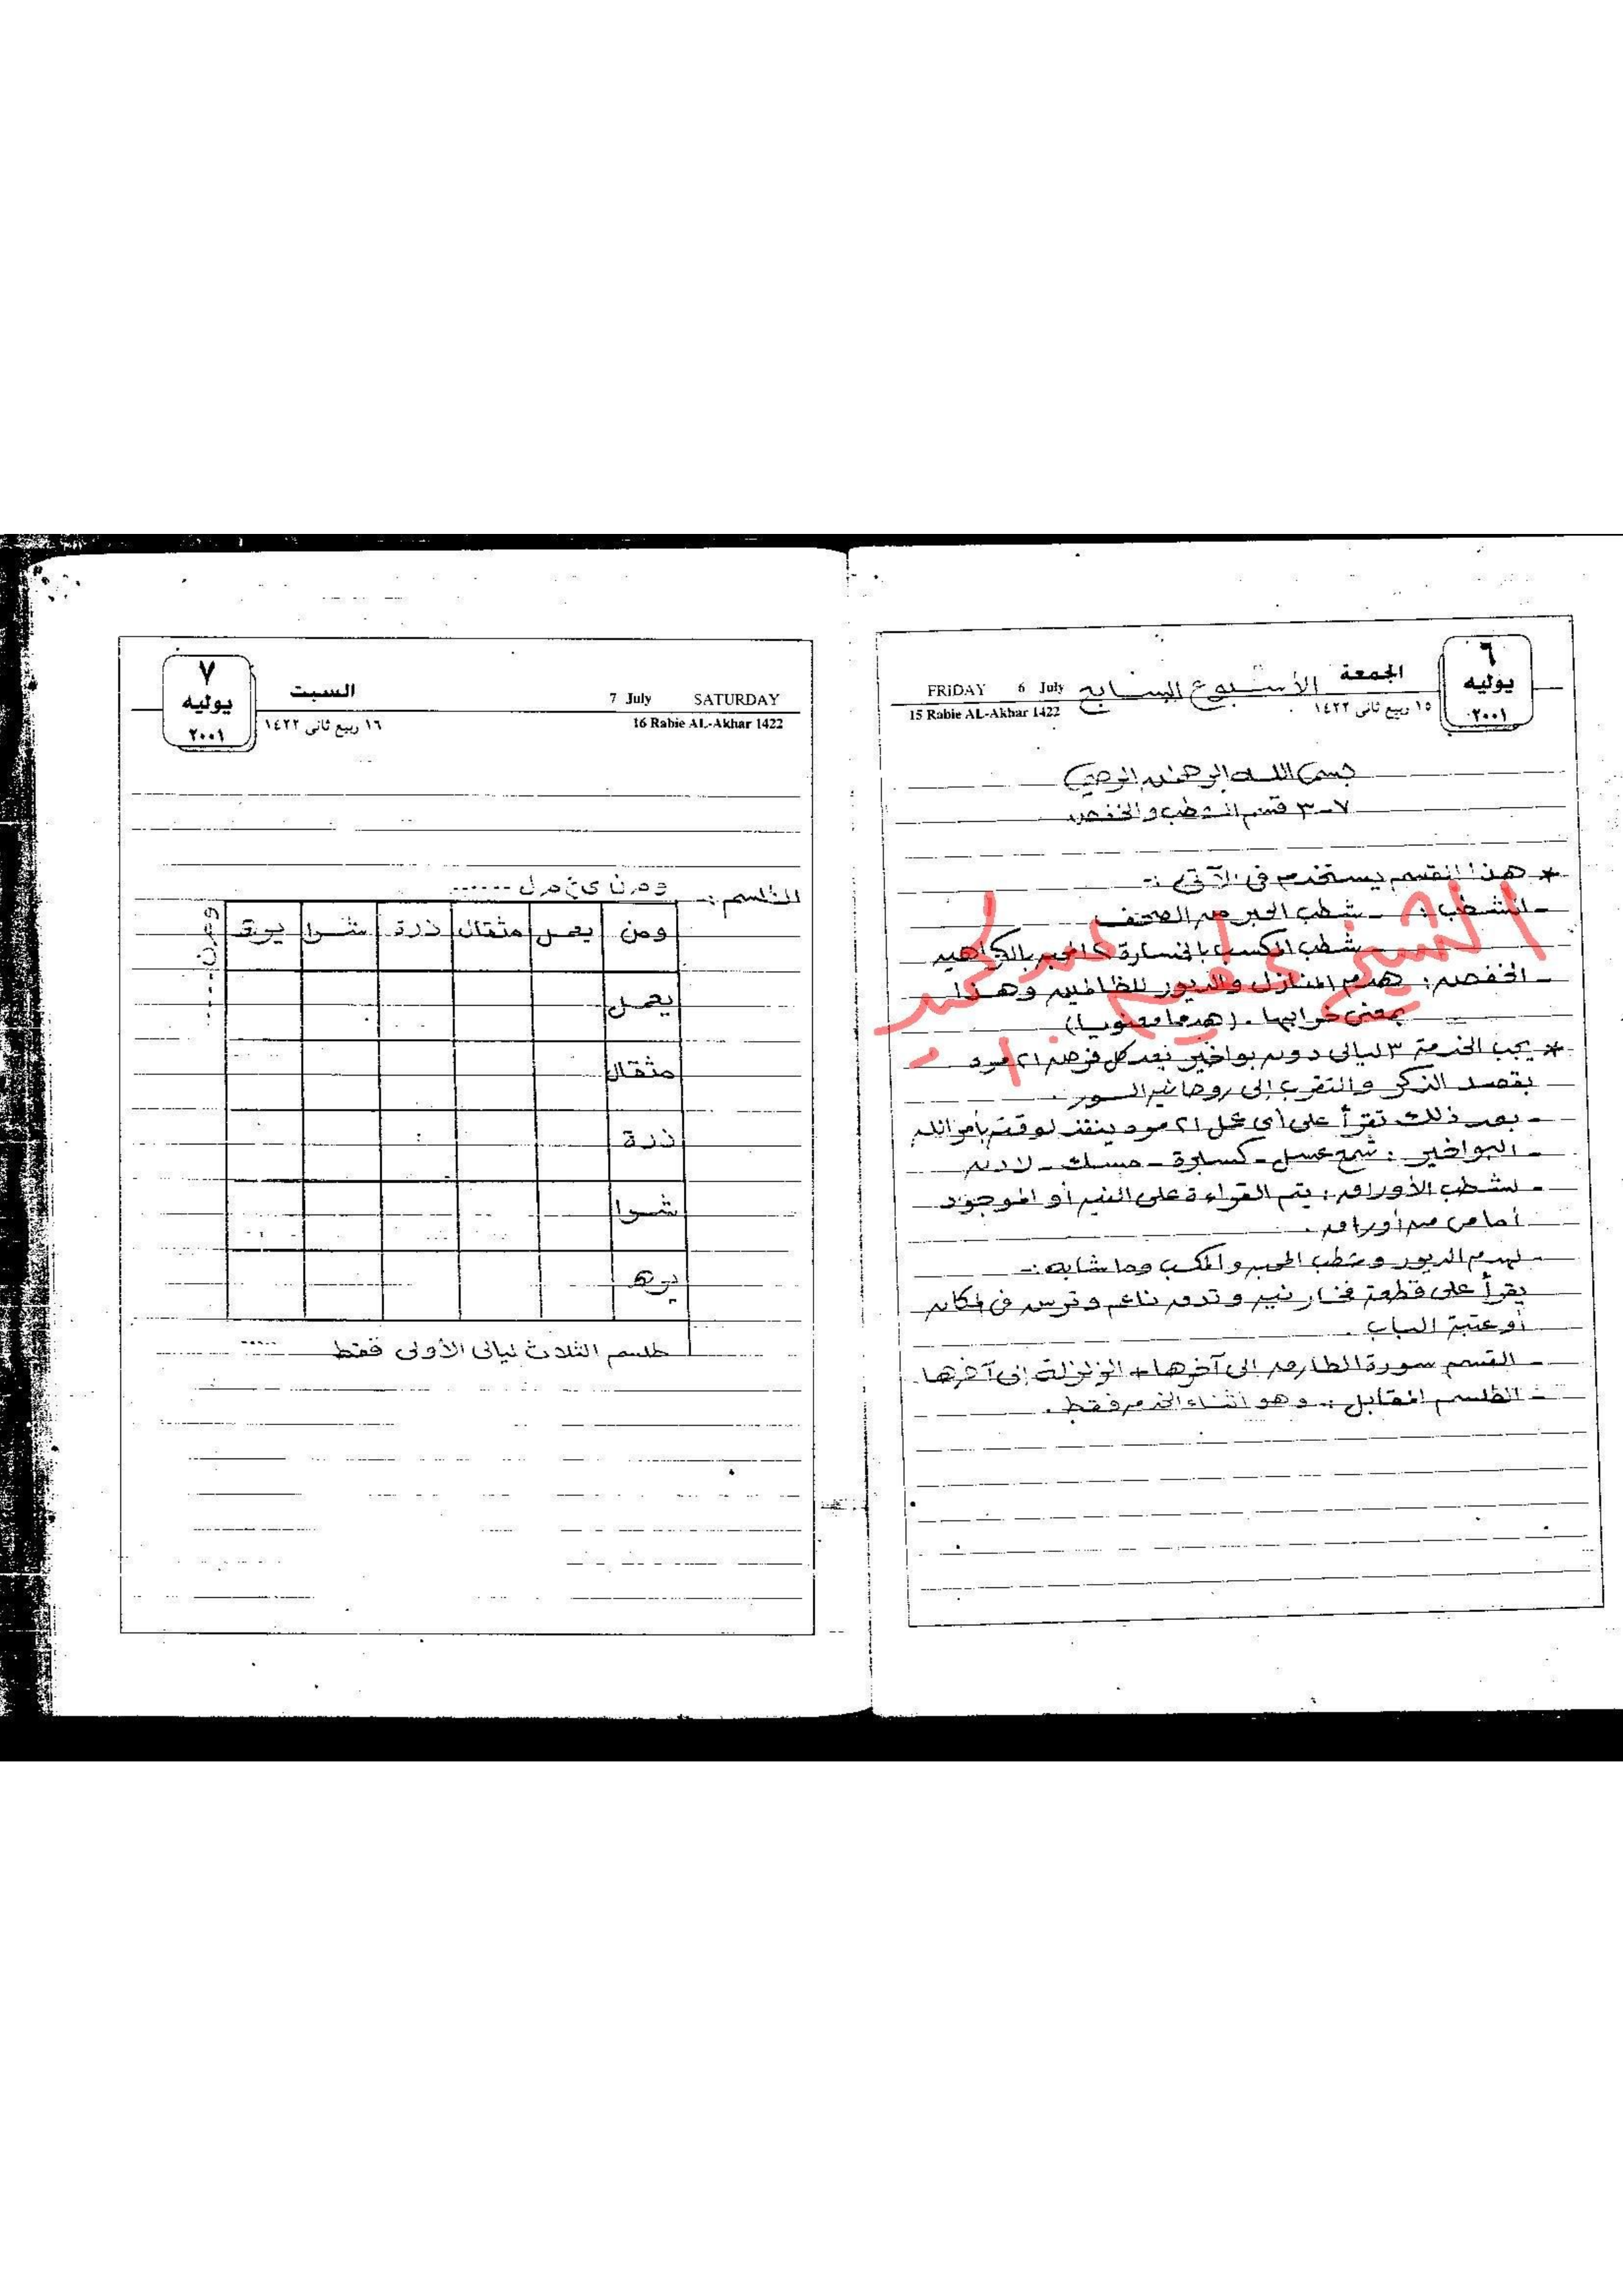 ٦
يوليه
٢٠٠١
الجمعة
الأسبوع السابع
FRiDAY 6 July
١٥ ربيع ثانى ١٤٢٢
15 Rabie AL-Akhar 1422
بسم الله الرحمن الرحيم
٧-٣ قسم الشطب والخفض
* هذا القسم يستخدم فى الآتى :-
- الشطب : - شطب الحبر من الصحف
شطب المكسب بالخسارة
- الخفض : هدم المنازل والديور للظالمين وهذا
بمعنى خرابها . (هدما معنويا)
* يجب الخدمة ٣ ليالى دون بواخير بعد كل فرض ٢١ مرة
بقصد الذكر والتقرب إلى روحانية السور .
- بعد ذلك تقرأ على أى عمل ٢١ مرة ينفذ لوقته بأمر الله
- البواخير : شمع عسل - كسبرة - مسك - لادن
- لشطب الأوراق : يتم القراءة على النية أو الموجود
أمامى من أوراق .
- لهدم الديور وشطب المحبة والمكسب وما شابه :-
يقرأ على قطعة فخار نية وتدق ناعم وترش فى المكان
أو عتبة الباب .
- القسم سورة الطارق إلى آخرها + الزلزلة إلى آخرها
- الطلسم المقابل : وهو أثناء الخدمة فقط .
الشيخ
٧
يوليه
٢٠٠١
السبت
7 July SATURDAY
١٦ ربيع ثانى ١٤٢٢
16 Rabie AL-Akhar 1422
الطلسم :-
و م ن ى ع م ل ......
و م ن ....
ومن يعمل مثقال ذرة شرا يره
يعمل
مثقال
ذرة
شرا
يره
طلسم الثلاث ليالى الأولى فقط .....